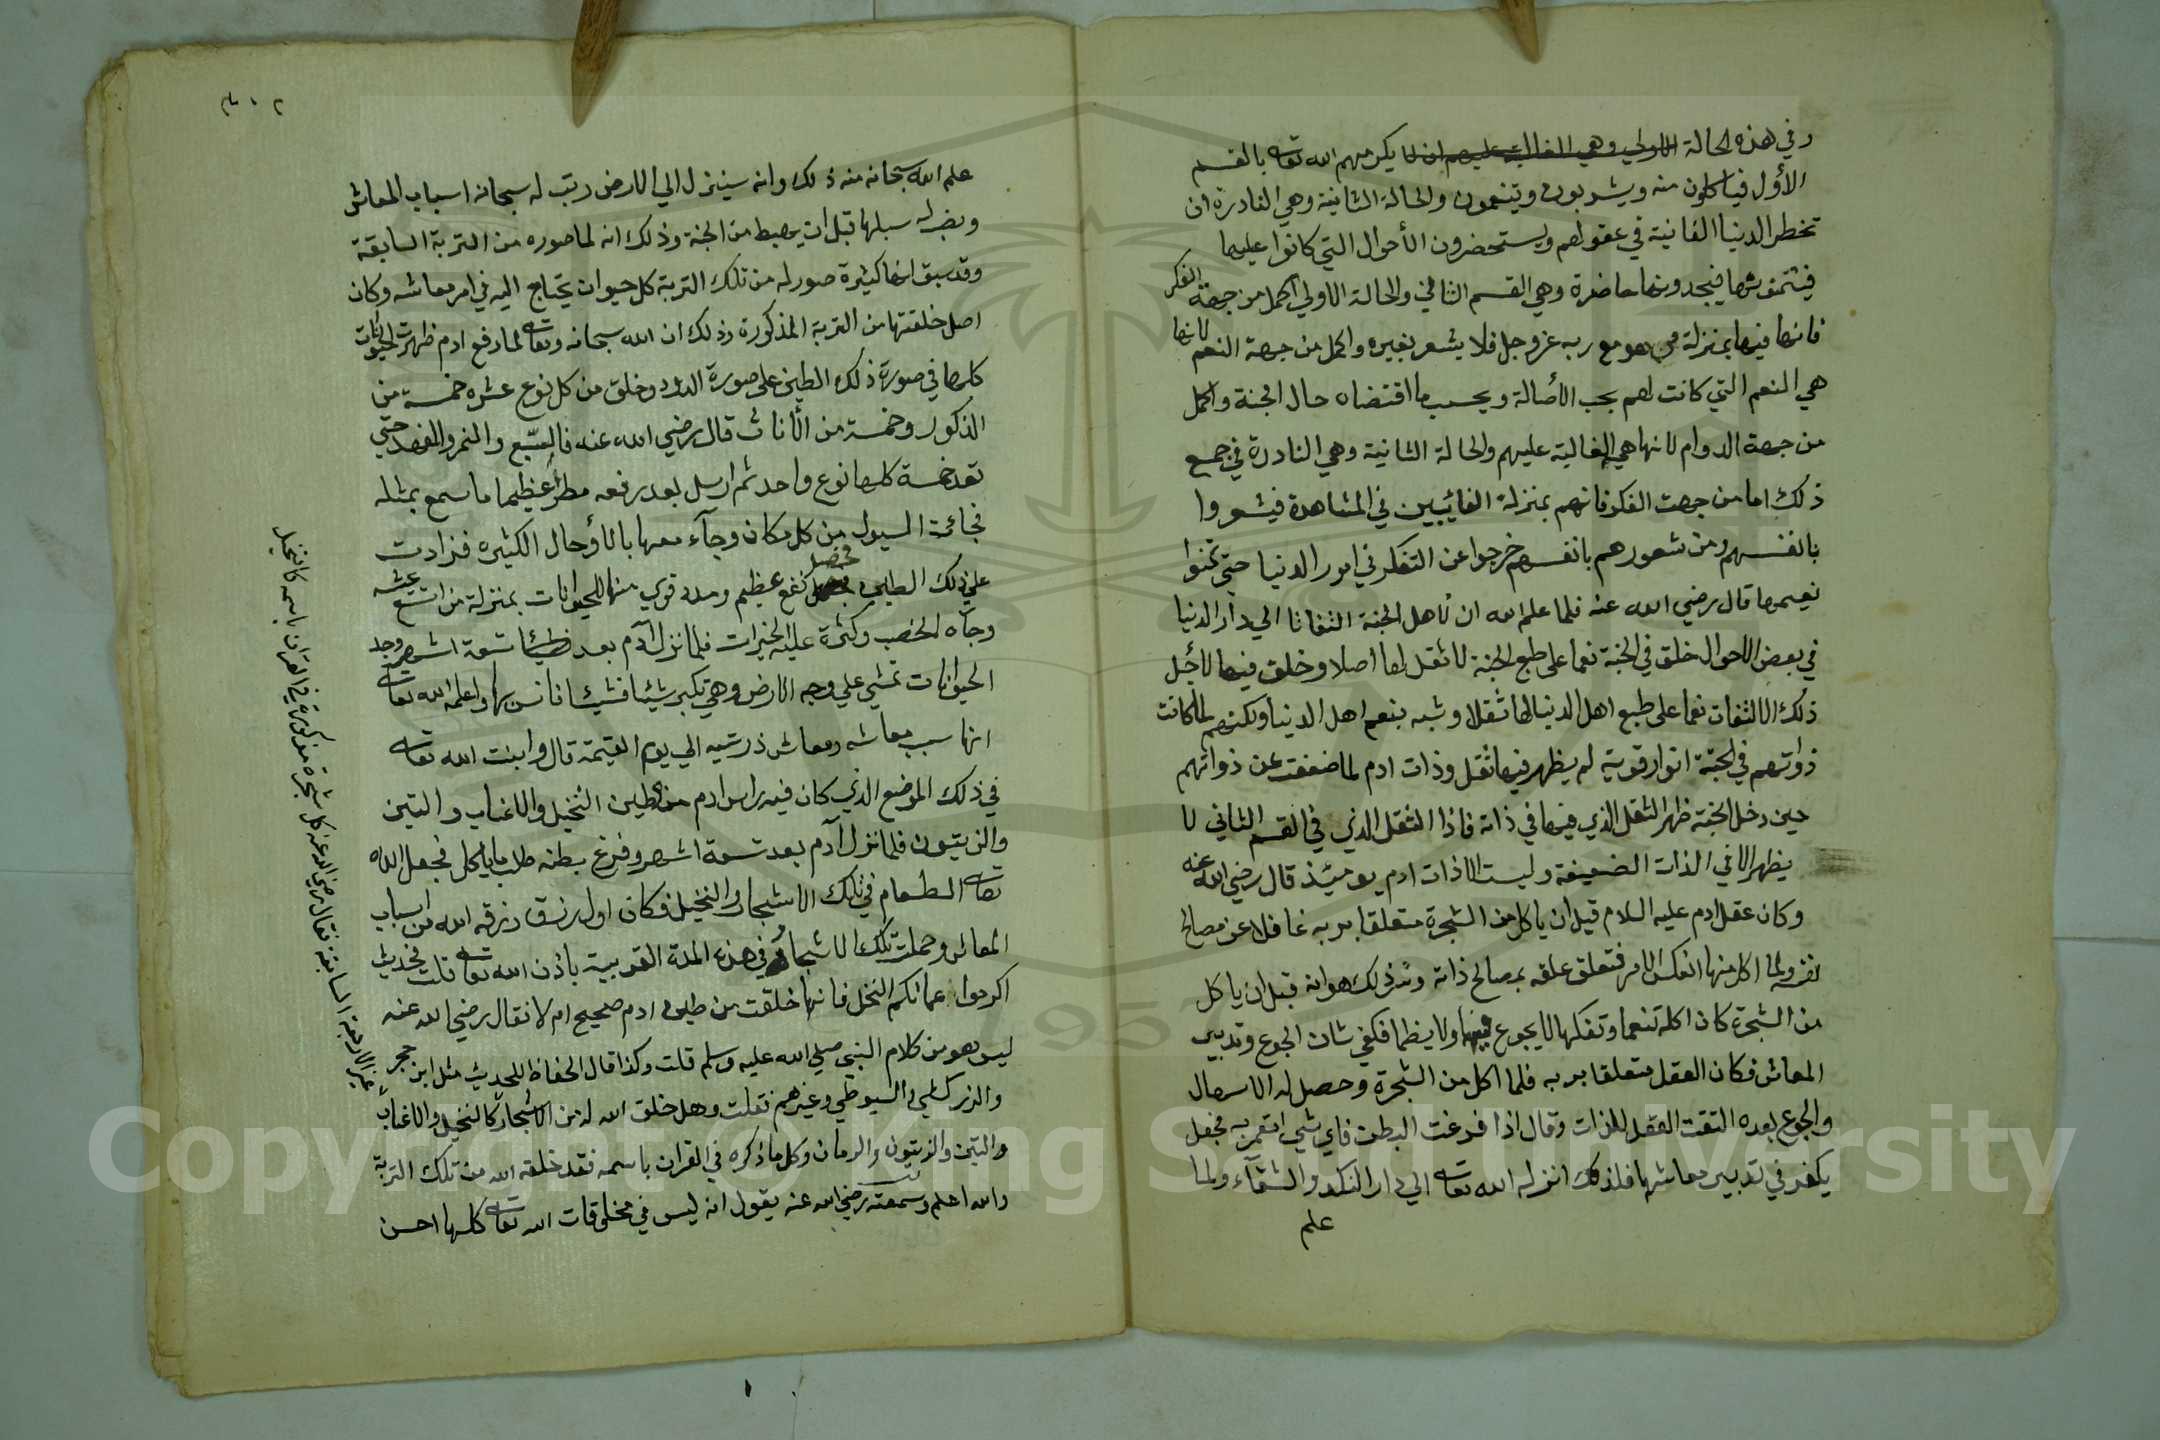 وفي هذه الحالة الاولي وهي الغالبة عليهم ان لا يكرمهم الله تعالى بالقسم
الأول فياكلون منه ويشربون ويتنعمون والحالة الثانية وهي النادرة ان
تخطر الدنيا الفانية في عقولهم ويستحضرون الأحوال التي كانوا عليها
فيتمنونها فيجدونها حاضرة وهي القسم الثاني والحالة الاولي اكمل من جهة الفكر
فانها فيها بمنزلة من هو مع ربه عز وجل فلا يشعر بغيره واكمل من جهة النعم لانها
هي النعم التي كانت لهم بحب الأصالة وبحسب ما اقتضاه حال الجنة واكمل
من جهة الدوام لانها هي الغالية عليهم والحالة الثانية وهي النادرة في جميع
ذلك اما من جهت الفكر فانهم بمنزلة الغائبين في المشاهدة فيشعروا
بانفسهم ومن شعورهم بانفسهم خرجوا عن التفكر في امور الدنيا حتى تمنوا
نعيمها قال رضي الله عنه فلما علم الله ان لاهل الجنة التفاتا الي دار الدنيا
في بعض الاحوال خلق في الجنة نعما على طبع الجنة لا ثقل لها اصلا وخلق فيها لأجل
ذلك الالتفات نعما على طبع اهل الدنيا لها ثقلا وشبه بنعم اهل الدنيا ولكنهم لما كانت
ذواتهم في الجنة انوار قوية لم يظهر فيها ثقل وذات ادم لما ضعفت عن ذواتهم
حين دخل الجنة ظهر الثقل الذي فيها في ذاته فاذا الثقل الذي في القسم الثاني لا
يظهر الا في الذات الضعيفة وليست الا ذات ادم يومئذ قال رضي الله عنه
وكان عقل ادم عليه السلام قبل ان ياكل من الشجرة متعلقا بربه غافلا عن مصالح
نفسه ولما اكل منها انعكس الامر فتعلق عقله بمصالح ذاته وسر ذلك هو انه قبل ان ياكل
من الشجرة كان اكله تنعما وتفكها لا يجوع فيها ولا يظما فكفي شان الجوع وتدبير
المعاش فكان العقل متعلقا بربه فلما اكل من الشجرة وحصل له الاسهال
والجوع بعده التفت العقل للذات وقال اذا فرغت البطن فاي شي اعمر به فجعل
يكفر في تدبير معاشها فلذلك انزله الله تعالى الي دار النكد والشقاء ولما
علم
علم الله سبحانه منه ذلك وانه سينزل الي الارض رتب له سبحانه اسباب المعاش
ويضرله سبلها قبل ان يهبط من الجنة وذلك انه لما صوره من التربة السابقة
وقد سبق انها كثيرة صور له من تلك التربة كل حيوان يحتاج اليه في امر معاشه وكان
اصل خلقتها من التربة المذكورة وذلك ان الله سبحانه وتعالى لما رفع ادم ظهرت الحيوانات
كلها في صورة ذلك الطين على صورة الدود وخلق من كل نوع عشره خمسة من
الذكور وخمسة من الأناث قال رضي الله عنه فالسبع والنمر والفهد حتي
تعد خمسة كلها نوع واحد ثم ارسل بعد رفعه مطرا عظيما ما سمع بمثله
فجائت السيول من كل مكان وجآء معها بالأوحال الكثيره فزادت
على ذلك الطين فحصل نفع عظيم ومدد قوي منها للحيوانات بمنزلة من اتسع عيشه
وجآه الخصب وكثرت عليه الخيرات فلما نزل آدم بعد تسعة اشهر وجد
الحيوانات تمشي علي وجه الارض وهي تكبر شيئا فشيئا فانس بها واعلمه الله تعالى
انها سبب معاشه ومعاش ذريته الي يوم القيمة قال وانبت الله تعالى
في ذلك الموضع الذي كان فيه راس ادم من الطين النخيل والاعناب والتين
والزيتون فلما نزل آدم بعد تسعة اشهر وفرغ بطنه طلب ما ياكل فجعل الله
تعالى الطعام في تلك الاشجار والنخيل فكان اول رزق رزقه الله من اسباب
المعاش وحملت تلك الاشجار في هذه المدة القريبة باذن الله تعالى قلت فحديث
اكرموا عماتكم النخل فانها خلقت من طين ادم صحيح ام لا فقال رضي الله عنه
ليس هو من كلام النبي صلي الله عليه وسلم قلت وكذا قال الحفاظ للحديث مثل ابن حجر
والزركشي والسيوطي وغيرهم فقلت وهل خلق الله له من الاشجار كالنخيل والاعناب
والتين والزيتون والرمان وكل ما ذكره في القران باسمه فقد خلقه الله من تلك التربة
والله اعلم وسمعته رضي الله عنه يقول انه ليس في مخلوقات الله تعالى كلها احسن
غير الاربعة السابقة فقال رضي الله عنه كل شجرة مذكورة في القران باسمه كالنخيل
Copyright © King Saud University
1957